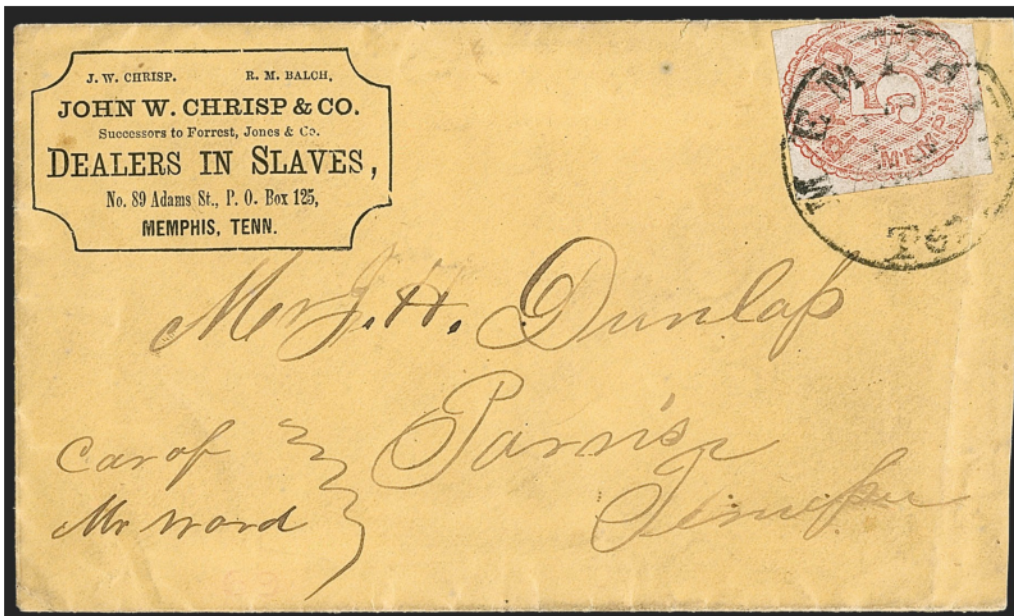 J. W. CHRISP. R. M. BALCH,
JOHN W. CHRISP & CO.
Successors to Forrest, Jones & Co.
DEALERS IN SLAVES,
No. 89 Adams St., P. O. Box 125,
MEMPHIS, TENN.
PAID
5
MEMPHIS
Mr J. H. Dunlap
Car of
Mr Word
Parris